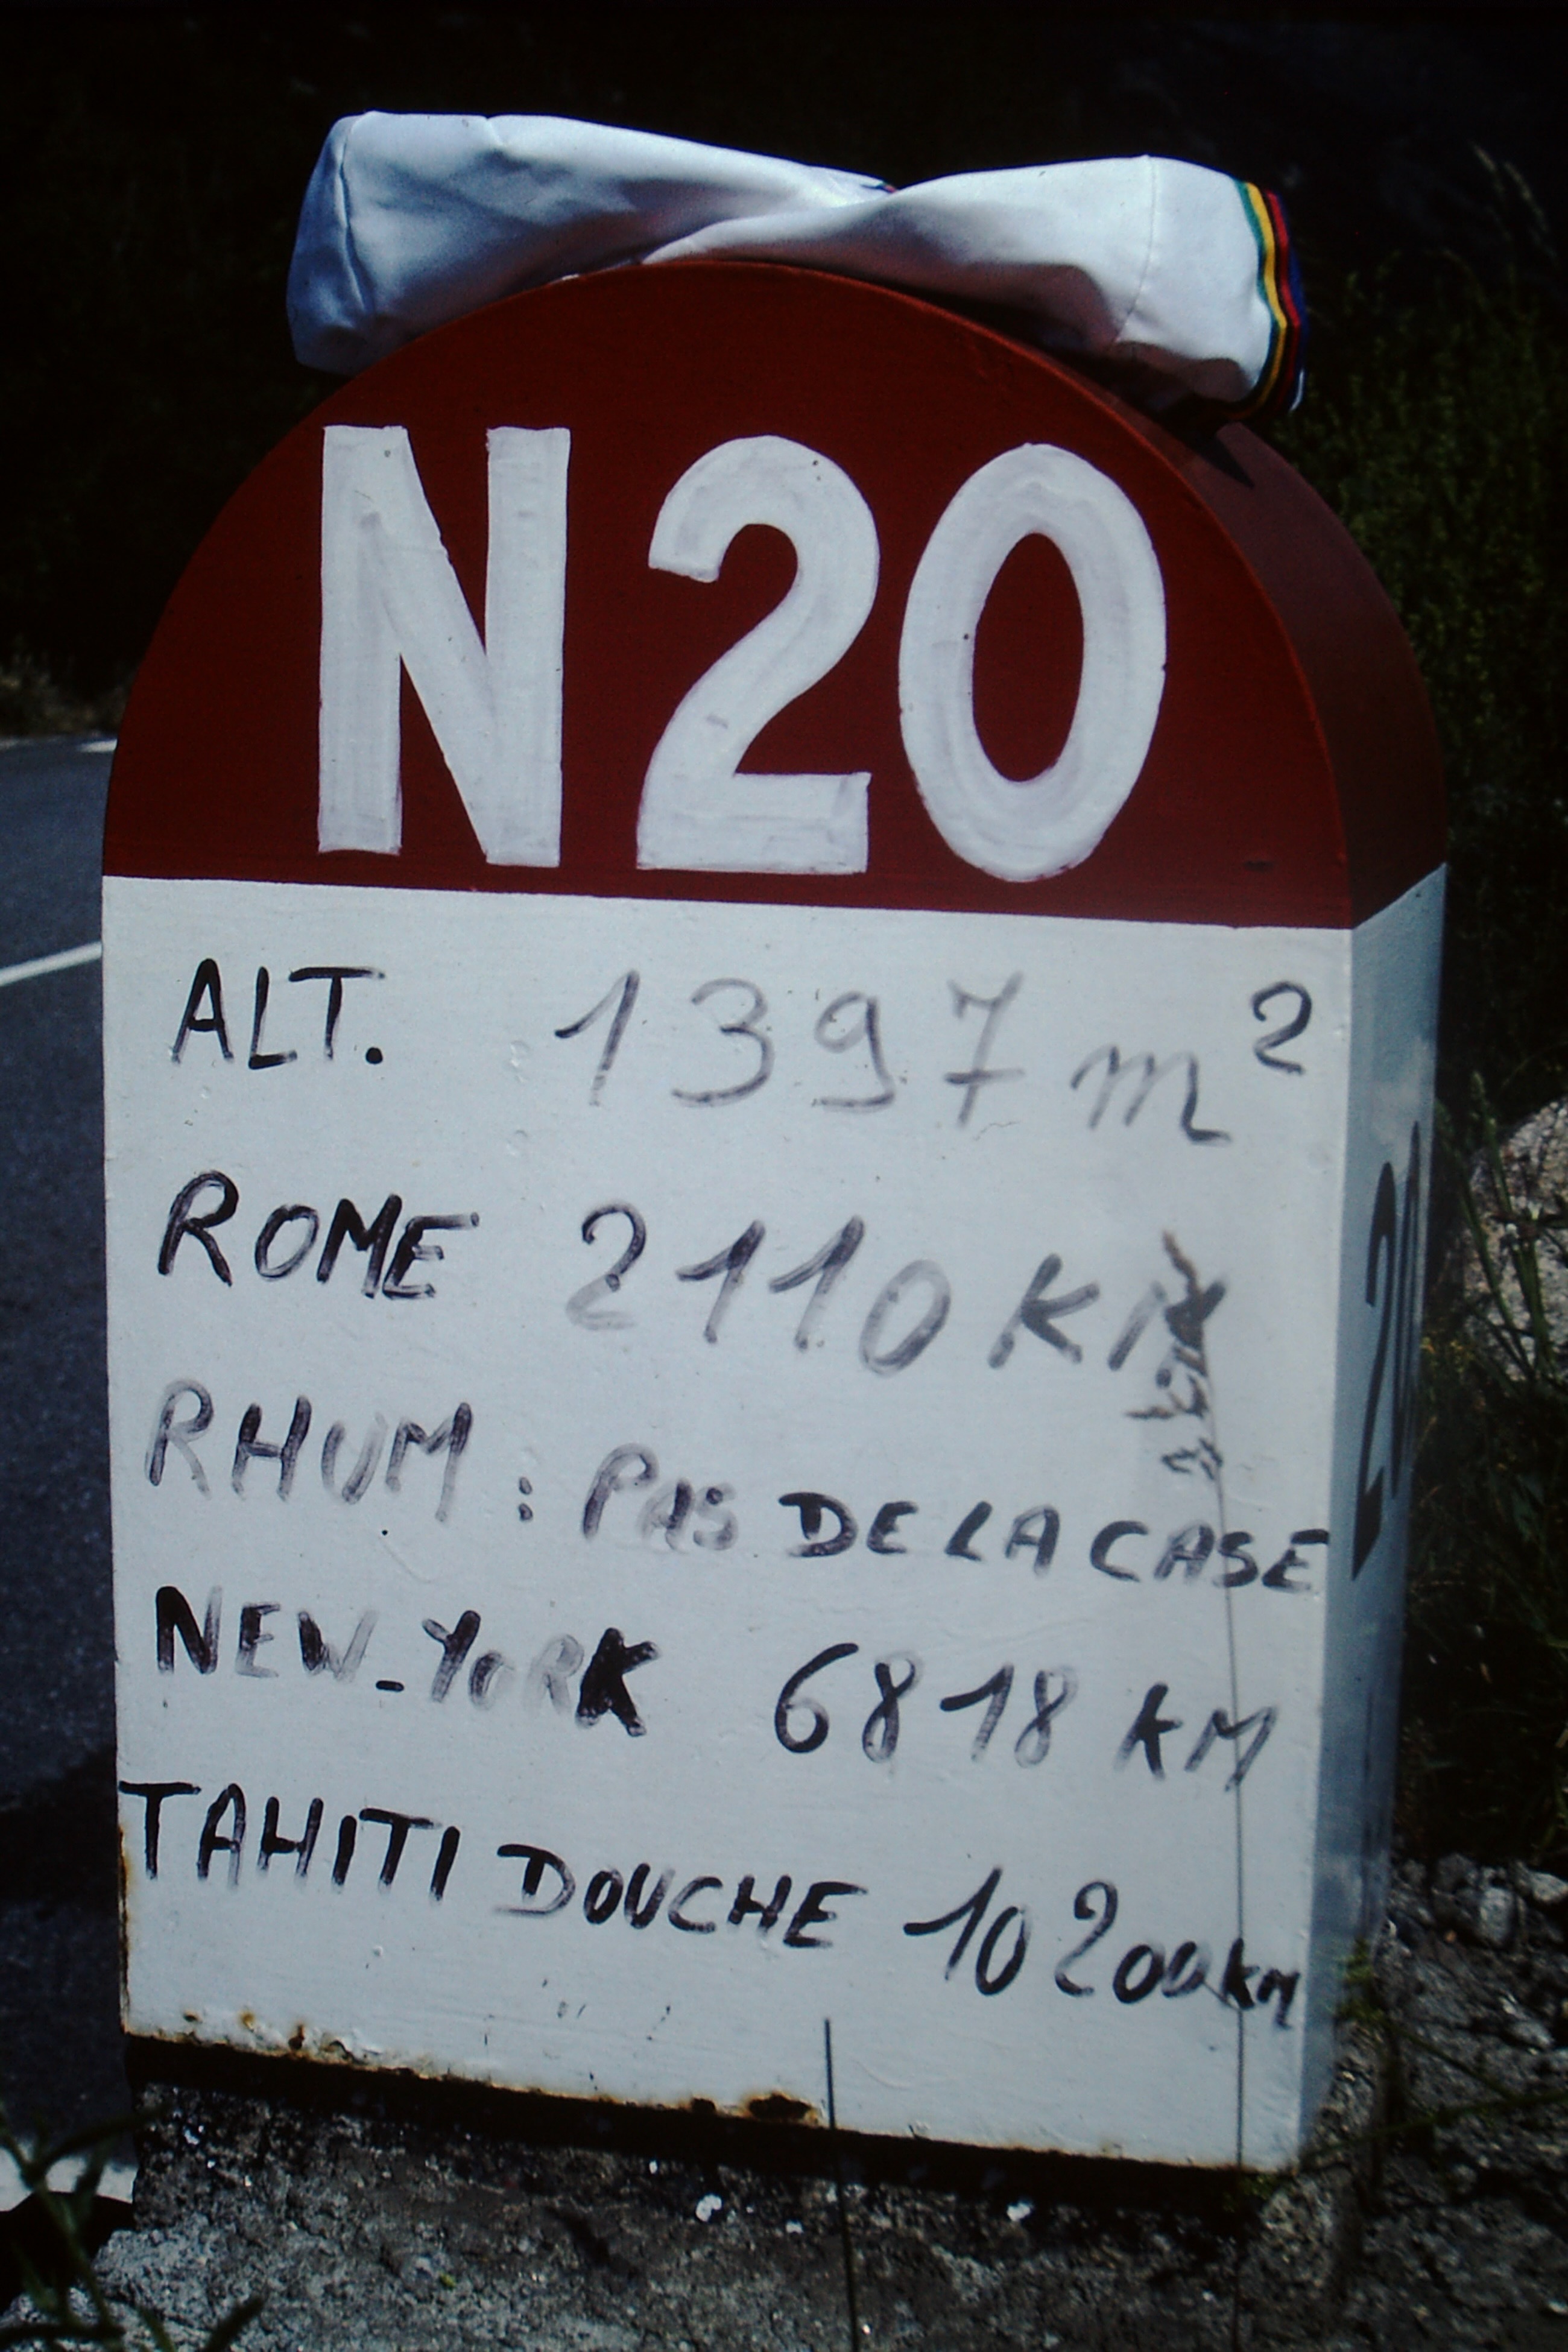 N20
ALT. 1397 m²
ROME 2110 KM
RHUM : PAS DE LA CASE
NEW-YORK 6818 KM
TAHITI DOUCHE 10 200 KM
20